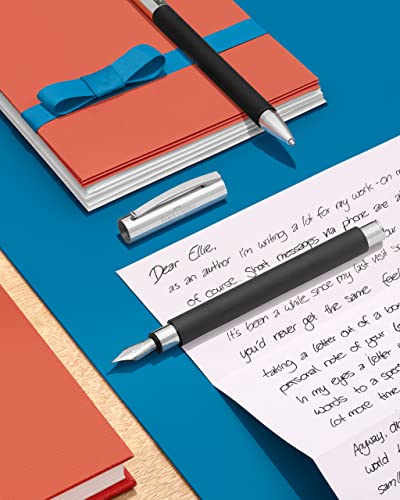 Dear Ellie,
as an author i'm writing a lot for my work - on m
of course. Short messages via phone are a
it's been a while since my last visit so
you'd never get the same feel
taking a letter out of a bo
personal note of your l
In my eyes a letter
words to a spe
lot more time
Anyway, 
world